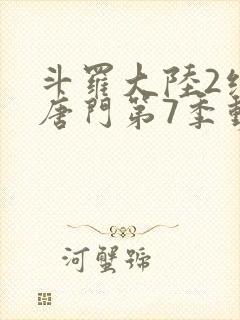 斗羅大陸2
唐門第7季
河蟹號